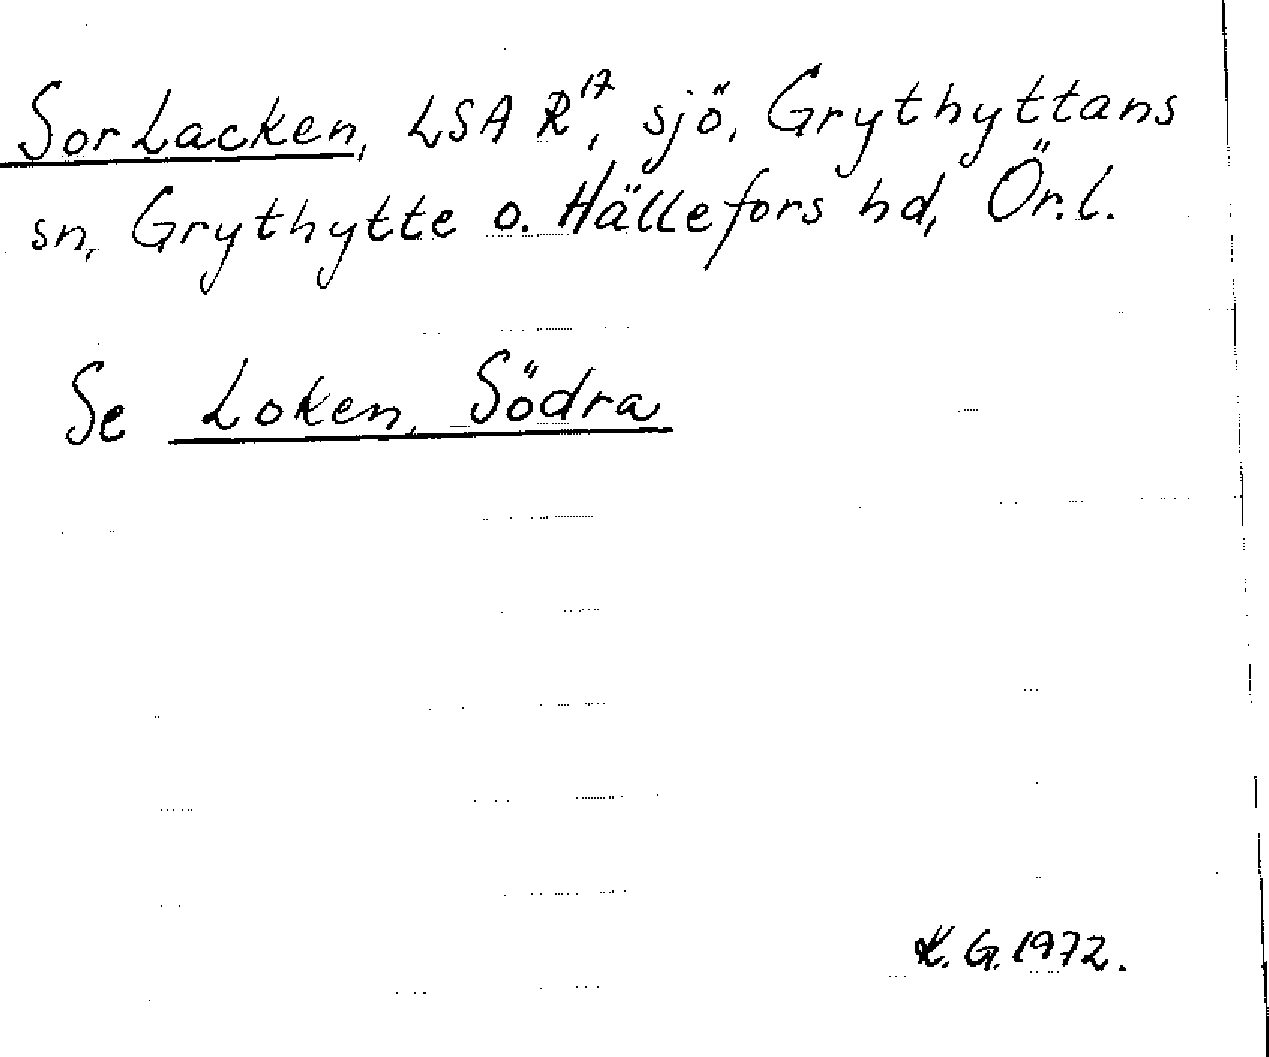 Sor Lacken, LSA R17, sjö, Grythyttans
sn, Grythytte o. Hällefors hd, Ör.l.
Se Loken, Södra
K.G. 1972.